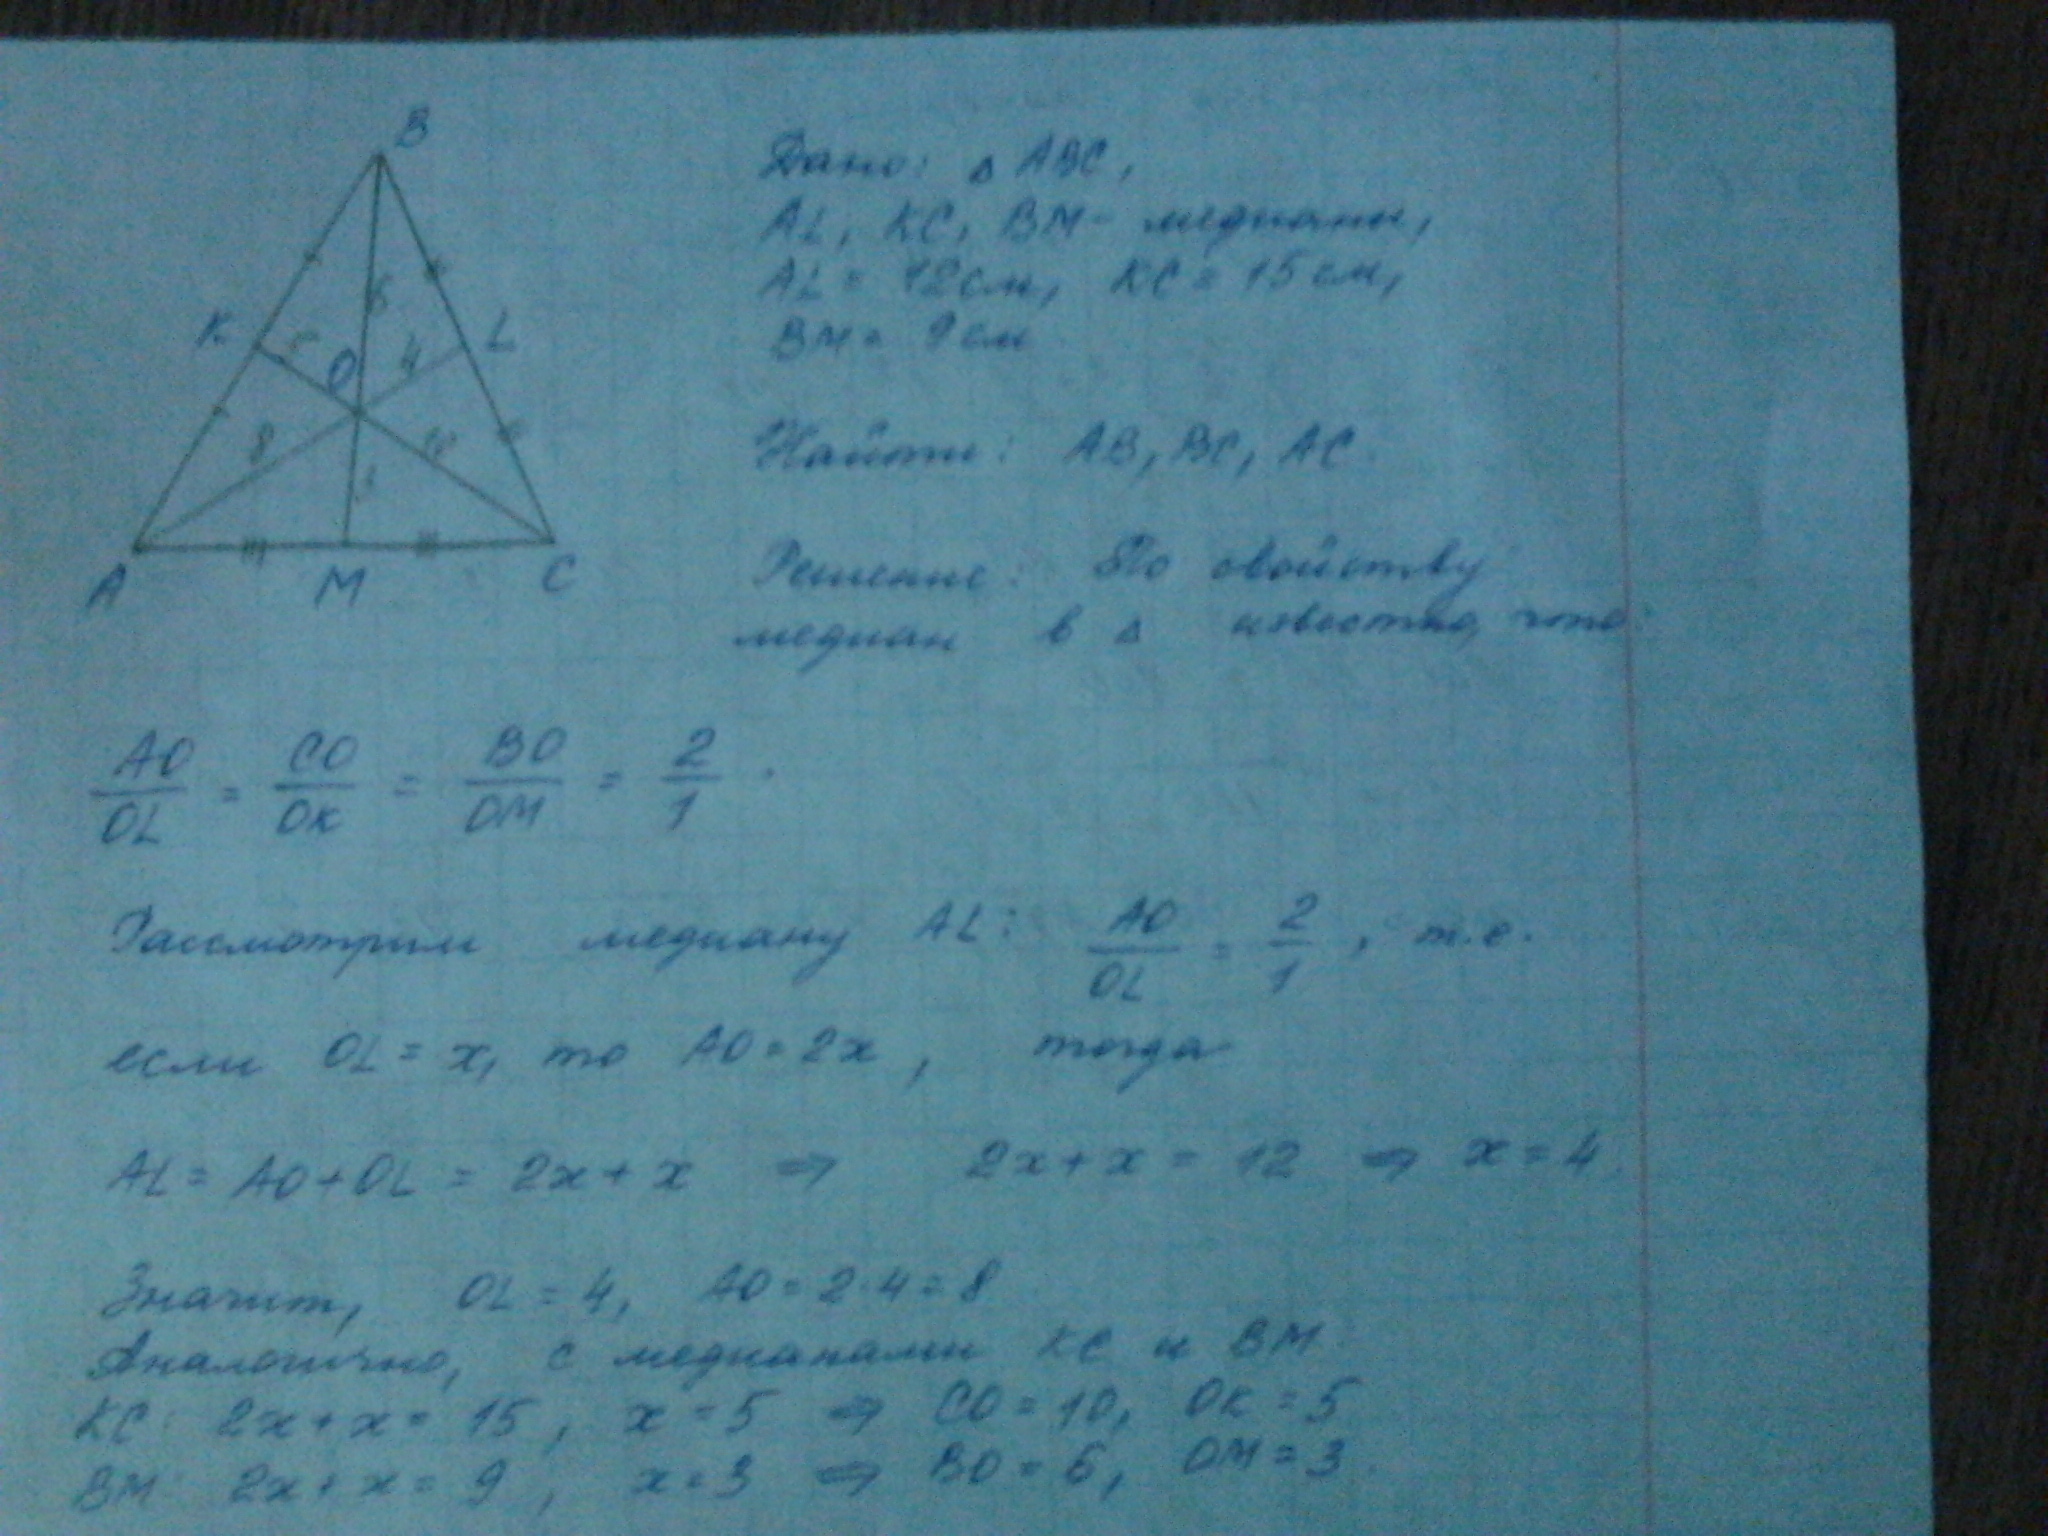 B
K
L
O
A
M
C
6
5
4
8
10
3
Дано: △ ABC,
AL, KC, BM - медианы,
AL = 12 см, KC = 15 см,
BM = 9 см
Найти: AB, BC, AC.
Решение: По свойству
медиан в △ известно, что:
AO/OL = CO/OK = BO/OM = 2/1.
Рассмотрим медиану AL: AO/OL = 2/1, т.е.
если OL = x, то AO = 2x, тогда
AL = AO + OL = 2x + x ⇒ 2x + x = 12 ⇒ x = 4.
Значит, OL = 4, AO = 2·4 = 8
Аналогично, с медианами KC и BM.
KC: 2x + x = 15, x = 5 ⇒ CO = 10, OK = 5
BM: 2x + x = 9, x = 3 ⇒ BO = 6, OM = 3.